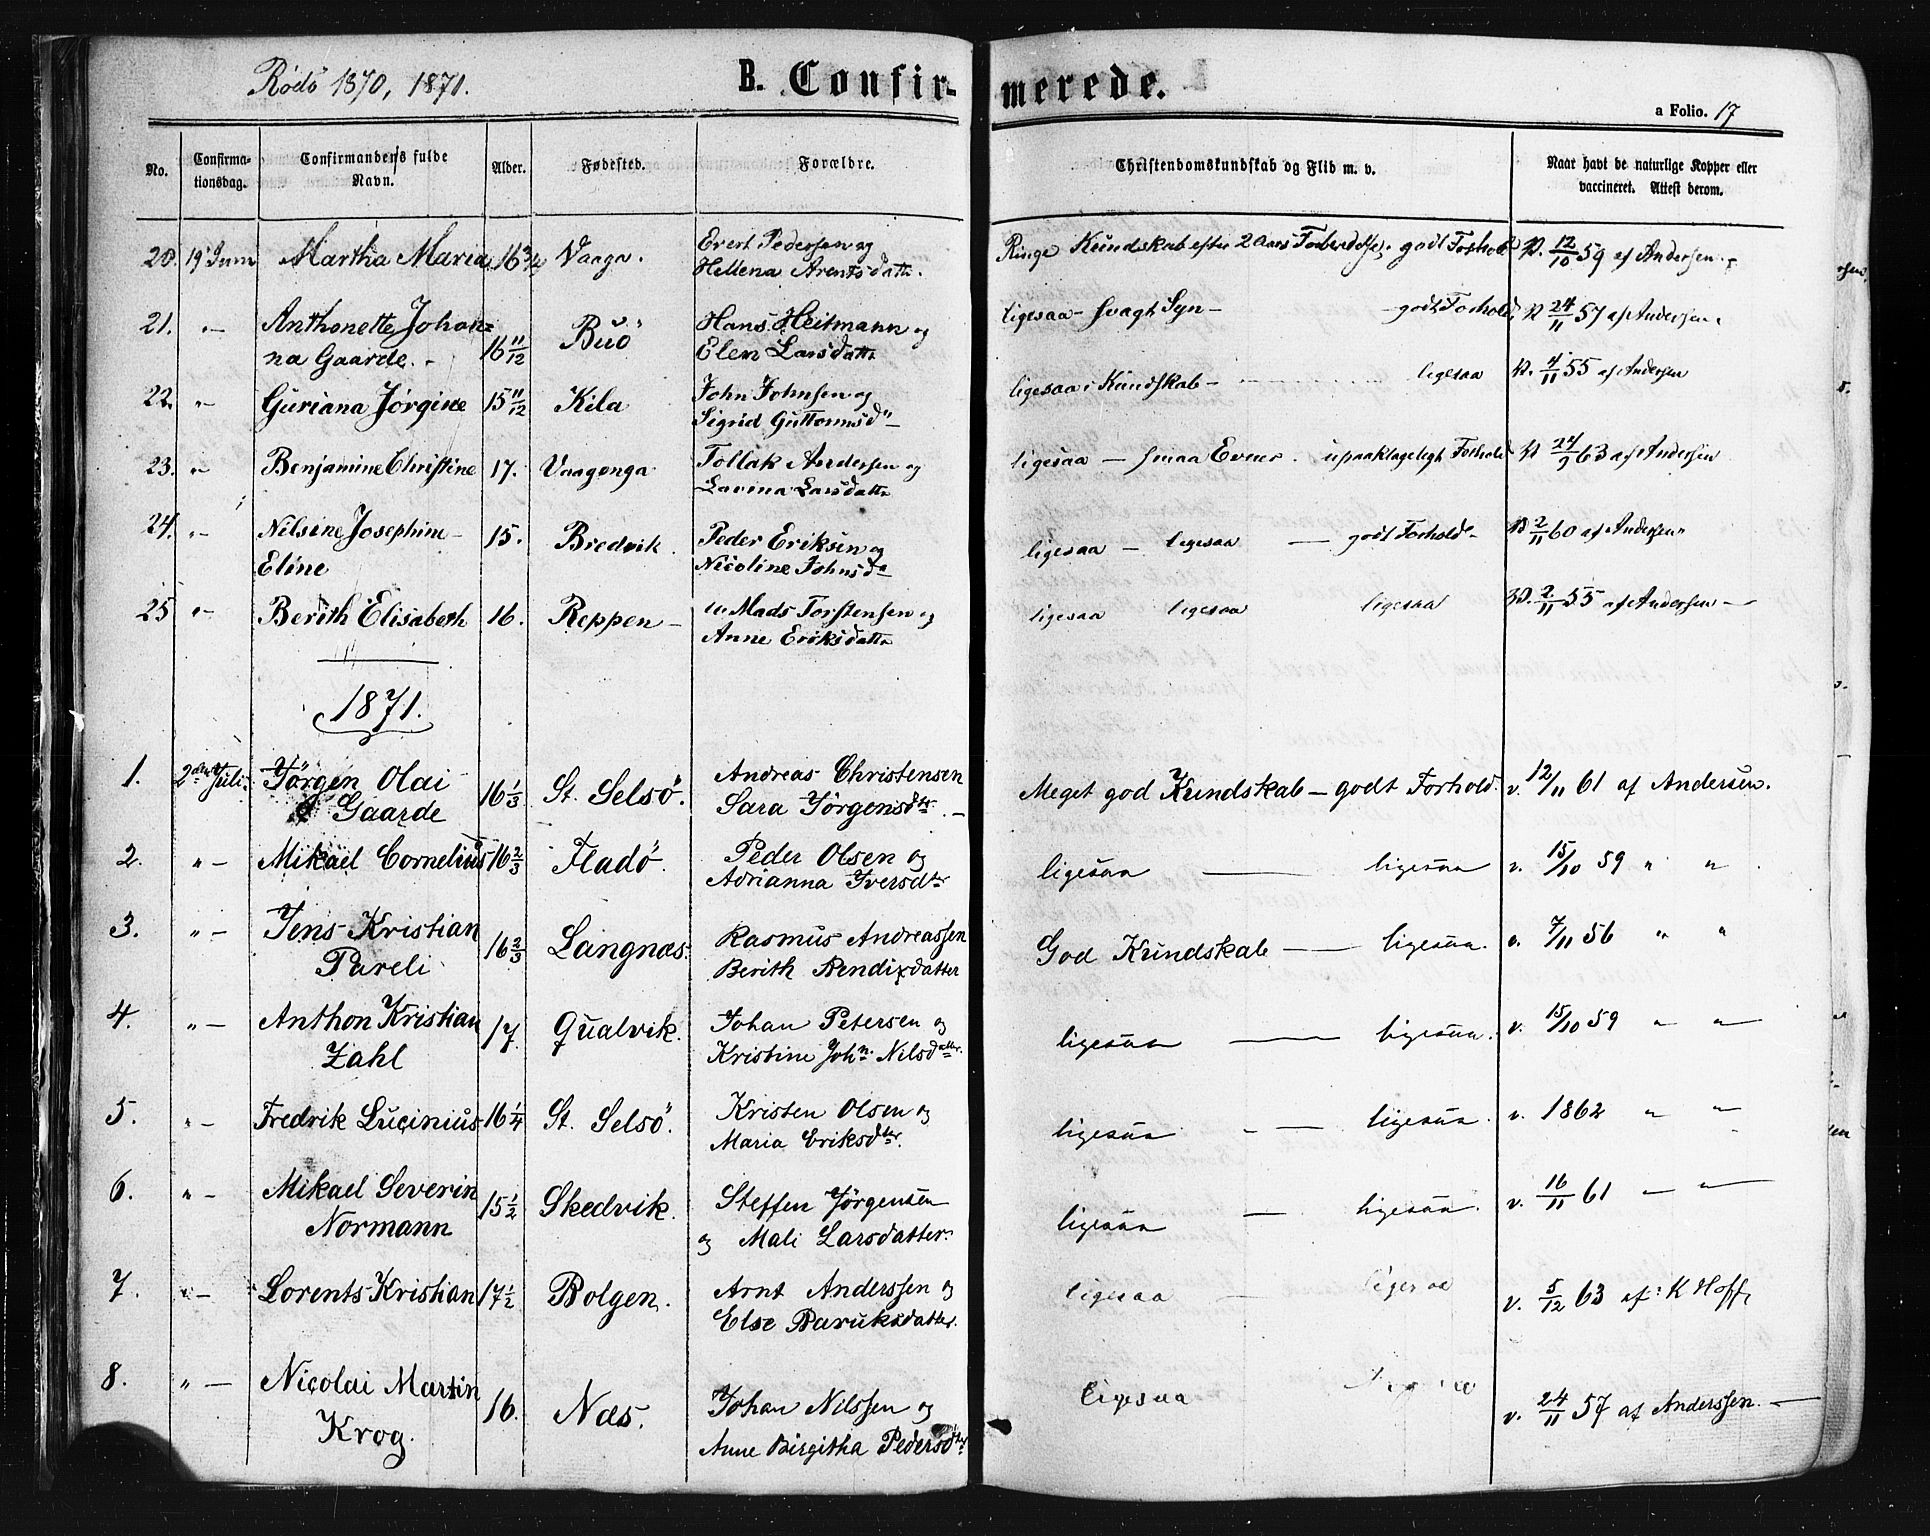 Rödö 1870, 1871.
B. Confirmerede.
a Folio. 17
No. Confirmationsdag. Confirmandens fulde Navn. Alder. Fødested. Forældre. Christendomskundskab og Flid m. v. Naar havt de naturlige Kopper eller vaccineret. Attest derom.
20. 19 Juni Martha Maria 16 3/4 Vaaga. Evert Pedersen og Ringe Kundskab efter 2 Aars Forberedelse, godt Forhold V. 12/10 59 af Andersen.
Hellena Arentsdatt.
21. "– Anthonette Johan= 16 11/12 Buö Hans Heitmann og ligesaa – svagt Syn – – godt Forhold, V 24/11 57 af Andersen.
na Gaarde. – Elen Larsdattr
22. "– Guriana Jørgine 15 11/12 Kila John Johnsen og ligesaa i Kundskab – ligesaa V. 4/11 55 af Andersen
Sigrid Guttormsd"–
23. "– Benjamine Christine 17. Vaagenga Tollak Andersen og ligesaa – smaa Evner. upaaklageligt Forhold V 24/9 63 af Andersen
Lavina Larsdattr
24. "– Nilsine Josephine – 15. Bredvik. Peder Eriksen og ligesaa – ligesaa – godt Forhold – V 2/11 60 af Andersen
Eline Nicoline Johnsda
25 "– Berith Elisabeth 16. Reppen – Mads Torstensen og ligesaa ligesaa ligesaa V. 2/11 55 af Andersen –
Anne Eriksdattr
1871.
1. 2den Juli. Jörgen Olai 16 1/3 St. Selsö. Andreas Christensen Meget god Kundskab – godt Forhold. v. 12/11 61 af Andersen.
Gaarde Sara Jörgensdtr. –
2. "– Mikael Cornelius 16 2/3 Fladö. Peder Olsen og ligesaa – ligesaa v. 15/10 59 " "
Adrianna Iversdtr
3. "– Jens Kristian 16 2/3 Langnæs. Rasmus Andreassen God Kundskab – ligesaa. v. 7/11 56 " "
Pareli Berith Bendixdatter
4. "– Anthon Kristian 17 Qualvik. Johan Petersen og ligesaa – ligesaa. v. 15/10 59 " "
Zahl Kristine John. Nilsdatter.
5. "– Fredrik Lucinius 16 1/4 St. Selsö. Kristen Olsen og ligesaa – ligesaa. v. 1862 " "
Maria Eriksdtr.
6. "– Mikael Severin 15 1/2 Skedvik. Steffen Jörgensen ligesaa – ligesaa. v. 16/11 61 – "
Normann og Mali Larsdatter.
7. "– Lorents Kristian 17 1/2 Bolgen. Arnt Anderssen og ligesaa – ligesaa v. 5/12 63 af: K Hoff,
Else Baruksdatter.
8. "– Nicolai Martin 16. Næs. Johan Nilssen og ligesaa v. 24/11 57 af Anderssen. –
Krog. Anne Birgitha Pedersdtr